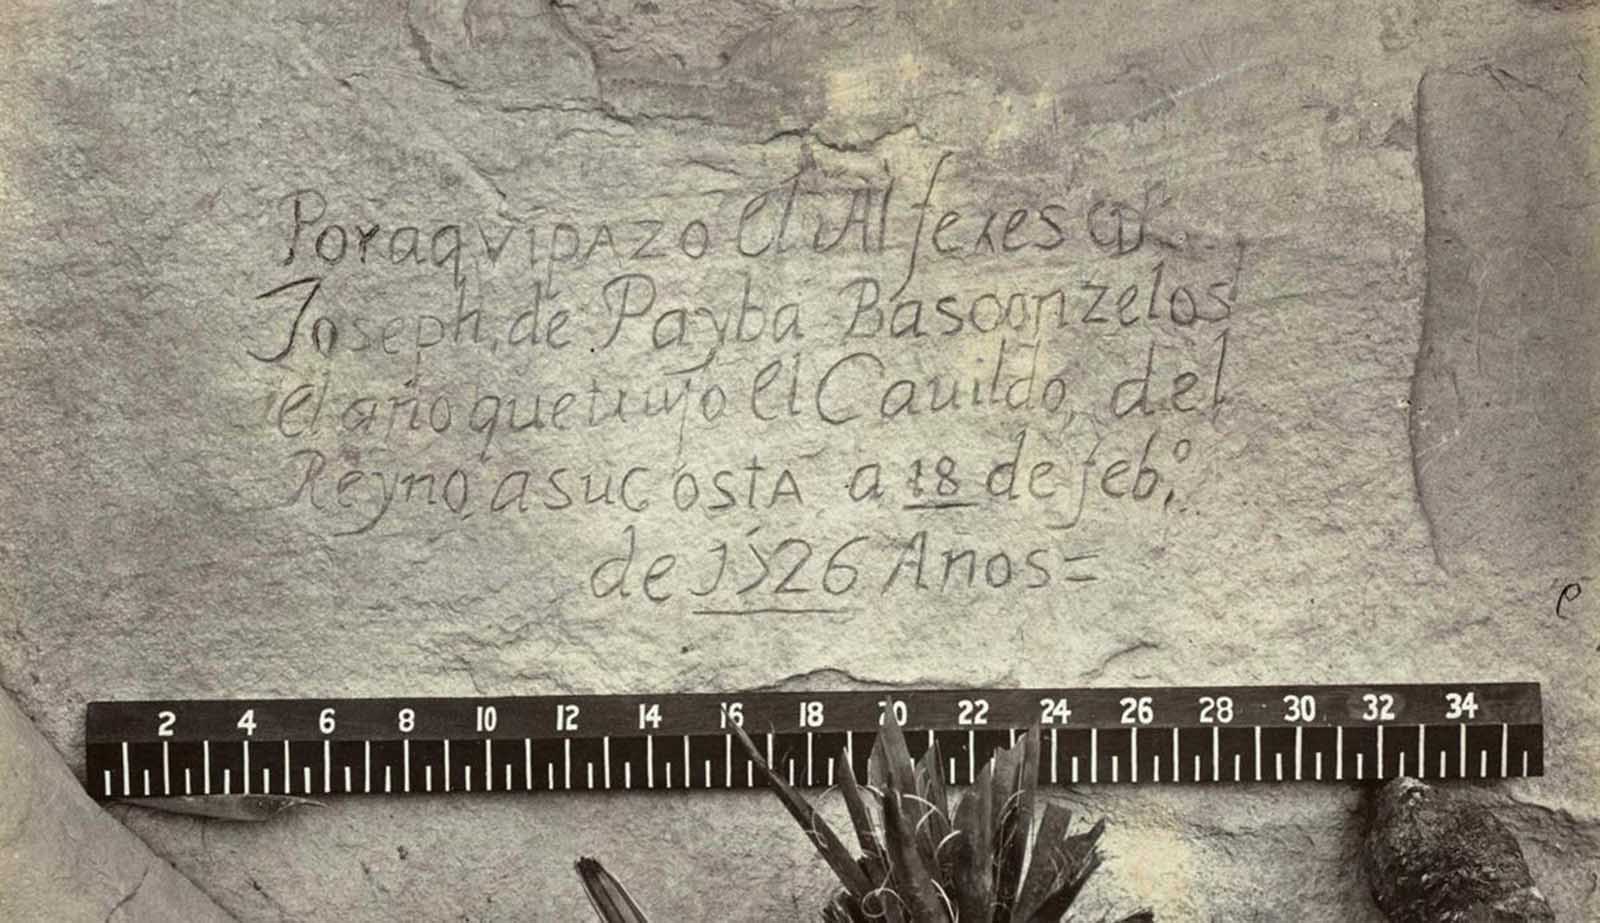 Por aqui pazo el Alferes Dn
Joseph de Payba Basconzelos
el año que trujo el Cauildo del
Reyno a su costa a 18 de febo
de 1526 Años =
2 4 6 8 10 12 14 16 18 20 22 24 26 28 30 32 34